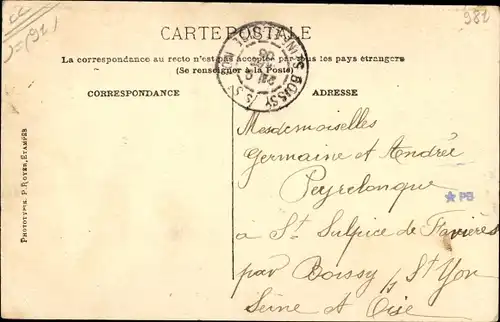 982
CARTE POSTALE
La correspondance au recto n'est pas acceptée par tous les pays étrangers
(Se renseigner à la Poste)
CORRESPONDANCE
ADRESSE
BOISSY
Mesdemoiselles
Germaine et Andrée
Peyrelongue
PB
à St Sulpice de Favières
par Boissy s/s St Yon
Seine et Oise
PHOTOTYPIE P. ROYER, ETAMPES